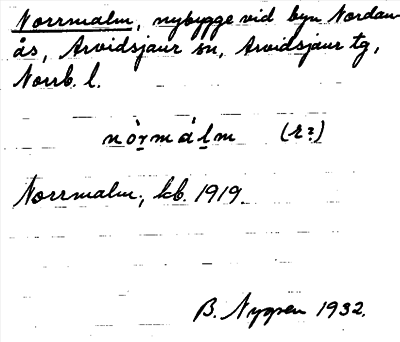 Norrmalm, nybygge vid byn Nordan-
ås, Arvidsjaur sn, Arvidsjaur tg,
Norrb. l.
nòrmálm (r?)
Norrmalm, kb. 1919.
B. 1932.